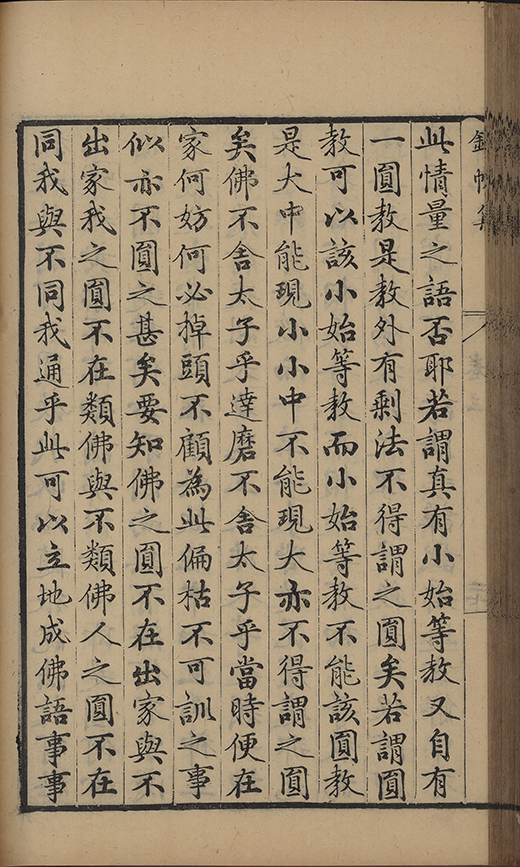 此情量之語否耶若謂真有小始等教又自有
一圓教是教外有剩法不得謂之圎矣若謂圓
教可以該小始等教而小始等教不能該圓教
是大中能現小小中不能現大亦不得謂之圎
矣佛不舍太子乎達磨不舍太子乎當時便在
家何妨何必掉頭不顧為此偏枯不可訓之事
似亦不圎之甚矣要知佛之圎不在出家與不
出家我之圎不在類佛與不類佛人之圎不在
同我與不同我通乎此可以立地成佛語事事